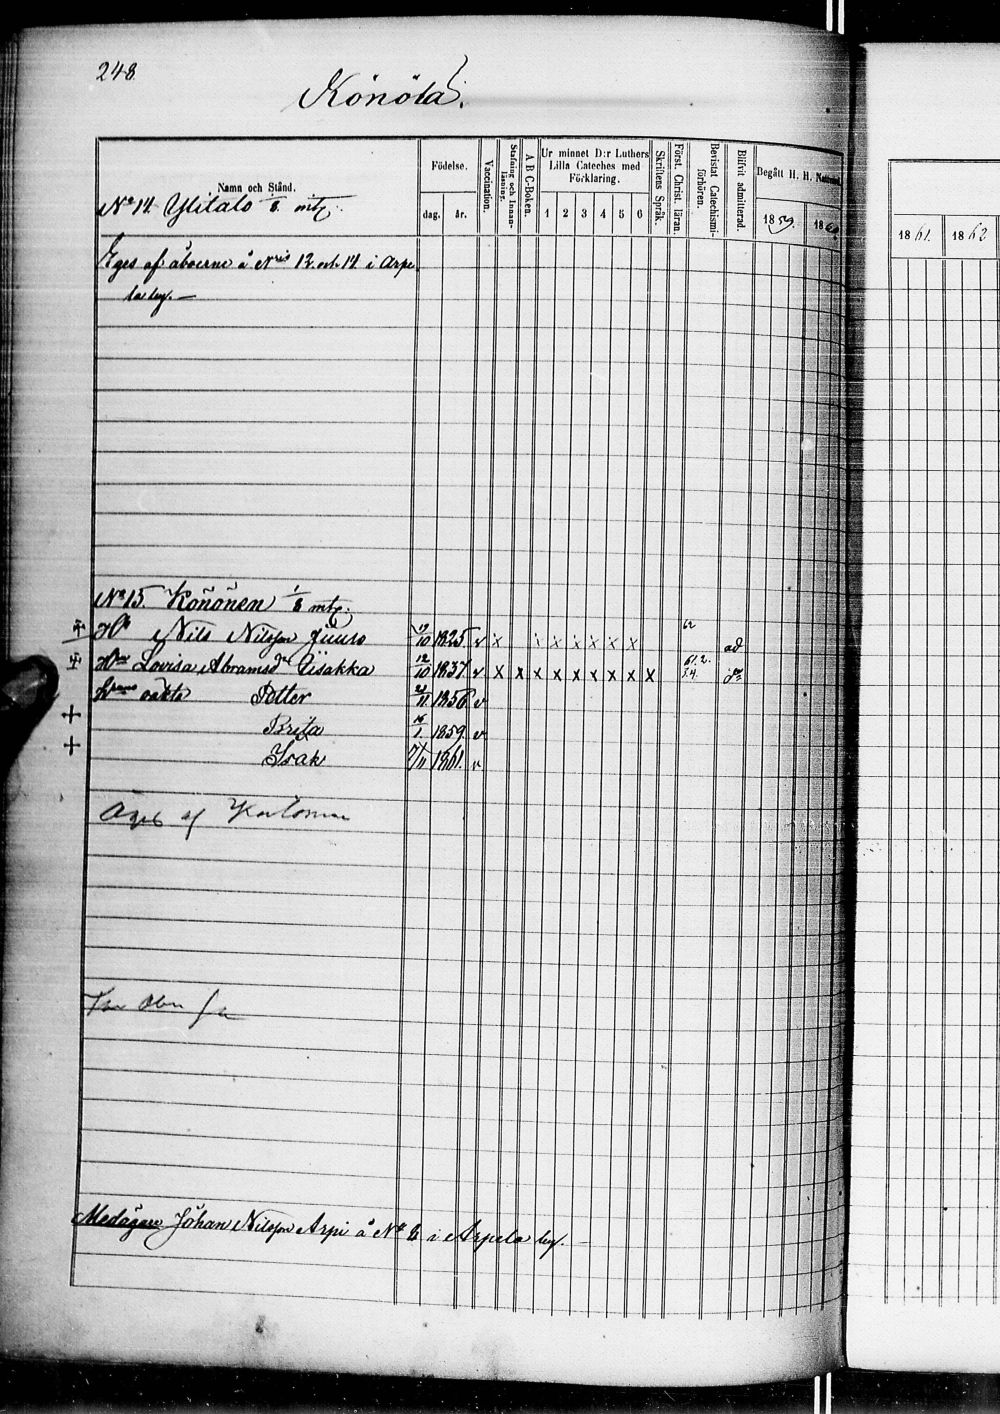 248
Könölä.
Namn och Stånd.
Födelse.
dag. år.
Vaccination.
Stafning och Innanläsning.
A B C-Boken.
Ur minnet D:r Luthers Lilla Cateches med Förklaring.
1 2 3 4 5 6
Skriftens Språk.
Först. Christ. läran.
Bevistat Catechismi-förhören.
Blifvit admitterad.
Begått H. H. Nattvard.
1859. 1860
1861. 1862
No 14. Ylitalo 1/8 mtl.
Eges af åboerne å Nris 12 och 14 i Arpe
la by. —
No 15. Könönen 1/8 mtl.
Nils Nilsson Juuso /10 1825. v x x x x x x x 62 ad
Lovisa Abramsdr Iisakka 12/10 1837. v x x x x x x x x x 61.2. 3.4.
Petter /11 1856 v
Brita /1. 1859. v.
Isak 7/11 1861. v
Äges af
Medägare Johan Nilsson Arpi å No 6 i Arpela by.